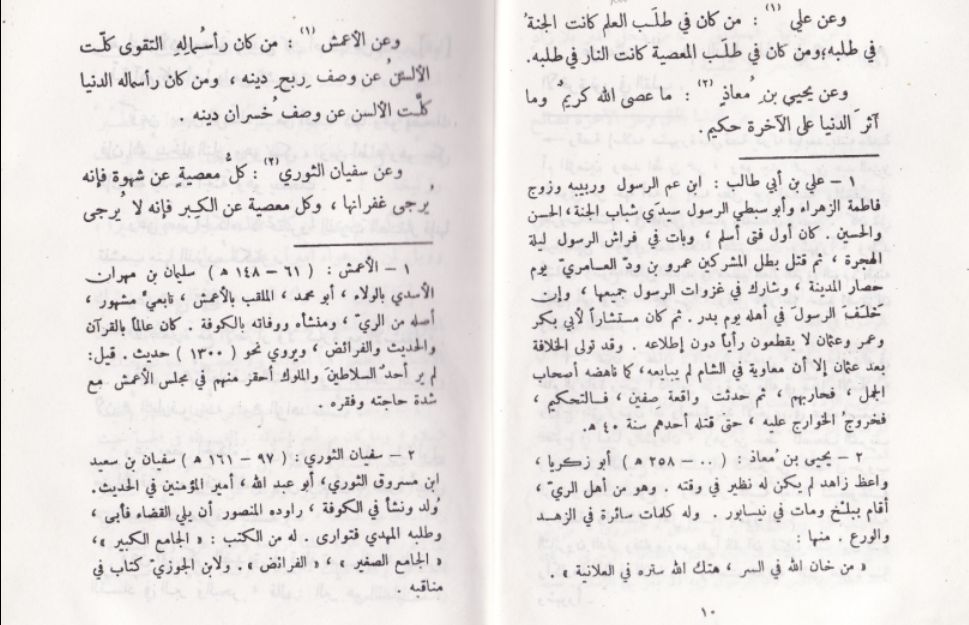 وعن علي (١) : من كان في طلَب العلم كانت الجنة ُ
في طلبه؛ ومن كان في طلَب المعصية كانت النار في طلبه.
وعن يحيى بن ِ مُعاذٍ (٢) : ما عصى الله كريم ٌ وما
آثرَ الدنيا على الآخرة حكيم .
١ – علي بن أبي طالب : ابن عم الرسول وربيبه وزوج
فاطمة الزهراء وأبو سبطي الرسول سيدَي شباب الجنة، الحسن
والحسين . كان أول فتى أسلم ، وبات في فراش الرسول ليلة
الهجرة ، ثم قتل بطل المشركين عمرو بن ودّ العامريّ يوم
حصار المدينة ، وشارك في غزوات الرسول جميعها ، وإن
خلَف الرسول في أهله يوم بدر . ثم كان مستشاراً لأبي بكر
وعمر وعثمان لا يقطعون رأياً دون إطلاعه . وقد تولى الخلافة
بعد عثمان إلا أن معاوية في الشام لم يبايعه، كما ناهضه أصحاب
الجمل ، فحاربهم ، ثم حدثت واقعة صفين ، فالتحكيم ،
فخروج الخوارج عليه ، حتى قتله أحدهم سنة ٤٠ هـ.
٢ – يحيى بن مُعاذ : ( ٠٠ – ٢٥٨ هـ ) أبو زكريا ،
واعظ زاهد لم يكن له نظير في وقته . وهو من أهل الريّ ،
أقام ببلخ ومات في نيسابور . وله كلمات سائرة في الزهد
والورع . منها :
« من خان الله في السر ، هتك الله ستره في العلانية » .
١٠
وعن الأعمش (١) : من كان رأسُمالِهِ التقوى كلّت
الألسُن عن وصف رِبح دينه ، ومن كان رأسماله الدنيا
كلّت الألسن عن وصف خُسران دينه .
وعن سفيان الثوري (٢) : كل معصيةٍ عن شهوة فإنه
يُرجى غفرانها ، وكل معصية عن الكِبر فإنه لا يُرجى
١ – الأعمش : ( ٦١ – ١٤٨ هـ ) سليمان بن مهران
الأسدي بالولاء ، أبو محمد ، الملقب بالأعمش ، تابعيّ مشهور ،
أصله من الريّ ، ومنشأه ووفاته بالكوفة . كان عالماً بالقرآن
والحديث والفرائض ، ويروي نحو ( ١٣٠٠ ) حديث . قيل:
لم ير أحدٌ السلاطين والملوك أحقر منهم في مجلس الأعمش مع
شدة حاجته وفقره .
٢ – سفيان الثوري : ( ٩٧ – ١٦١ هـ ) سفيان بن سعيد
ابن مسروق الثوري ، أبو عبد الله ، أمير المؤمنين في الحديث.
وُلد ونشأ في الكوفة ، راوده المنصور أن يلي القضاء فأبى ،
وطلبه المهدي فتوارى . له من الكتب : « الجامع الكبير » ،
« الجامع الصغير » ، « الفرائض » . ولابن الجوزيّ كتاب في
مناقبه .